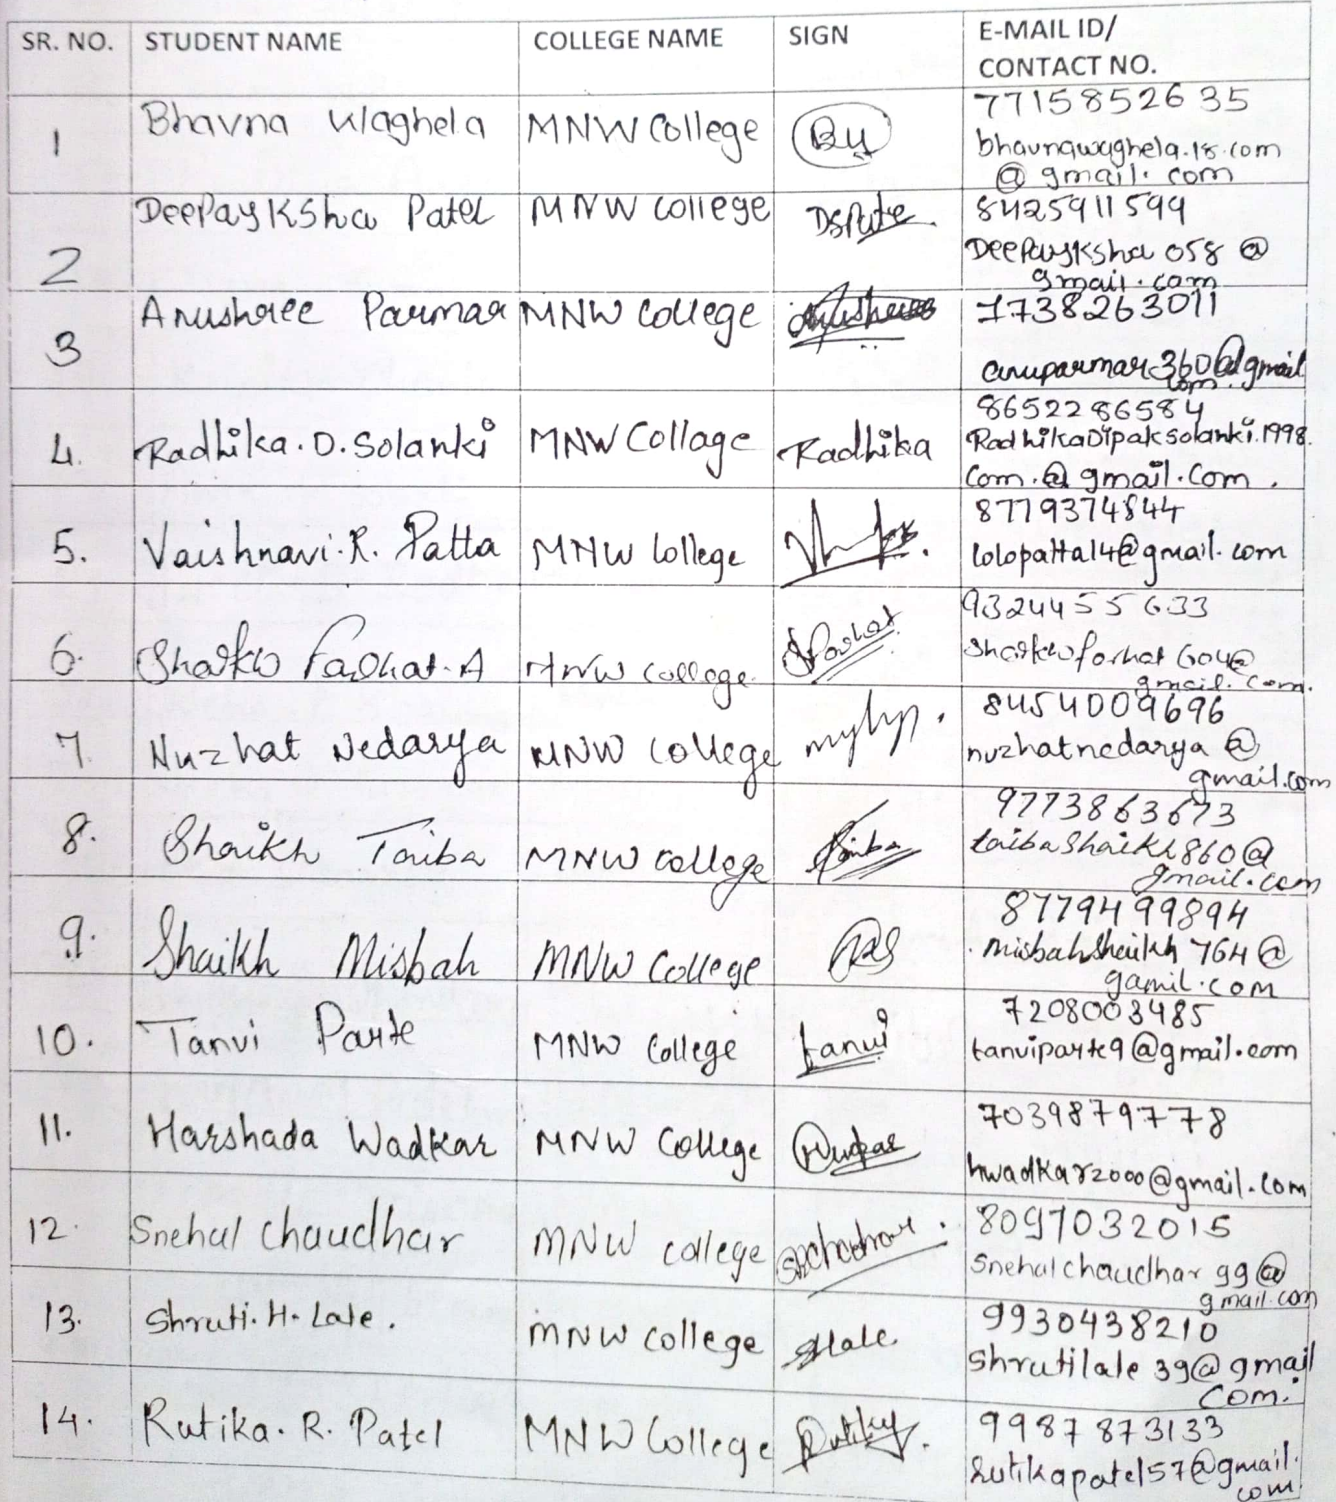 SR. NO. STUDENT NAME COLLEGE NAME SIGN E-MAIL ID/
CONTACT NO.
1 Bhavna Waghela MNW College 7715852635
bhavnawaghela.18.com
@gmail.com
2 DeePayKSha Patel MNW college 8425911599
DeePayKsha 058 @
gmail.com
3 Anushree Parmar MNW College 7738263011
anuparmar360@gmail
com.
4. Radhika.D.Solanki MNW Collage Radhika 8652286584
RadhikaDipaksolanki.1998.
Com.@gmail.Com.
5. Vaishnavi.R. Patta MNW College 8779374844
lolopatta14@gmail.com
6. Shaikh Farhat.A MNW college Farhat 9324455633
Shaikhfarhat604@
gmail.com.
7. Nuzhat Nedarya MNW College 8454009696
nuzhatnedarya @
gmail.com
8. Shaikh Taiba MNW college Taiba 9773863673
taibashaikh860@
gmail.com
9. Shaikh Misbah MNW College 8779499894
misbahshaikh 764@
gamil.com
10. Tanvi Parte MNW College tanvi 7208003485
tanviparte9@gmail.com
11. Harshada Wadkar MNW College 7039879778
hwadkar2000@gmail.com
12. Snehal chaudhar MNW college 8097032015
Snehalchaudhar 99@
gmail.com
13. Shruti.H.Late. MNW college SLate. 9930438210
Shrutilale 39@gmail
Com.
14. Rutika.R.Patel MNW College 9987873133
rutikapatel57@gmail.
com